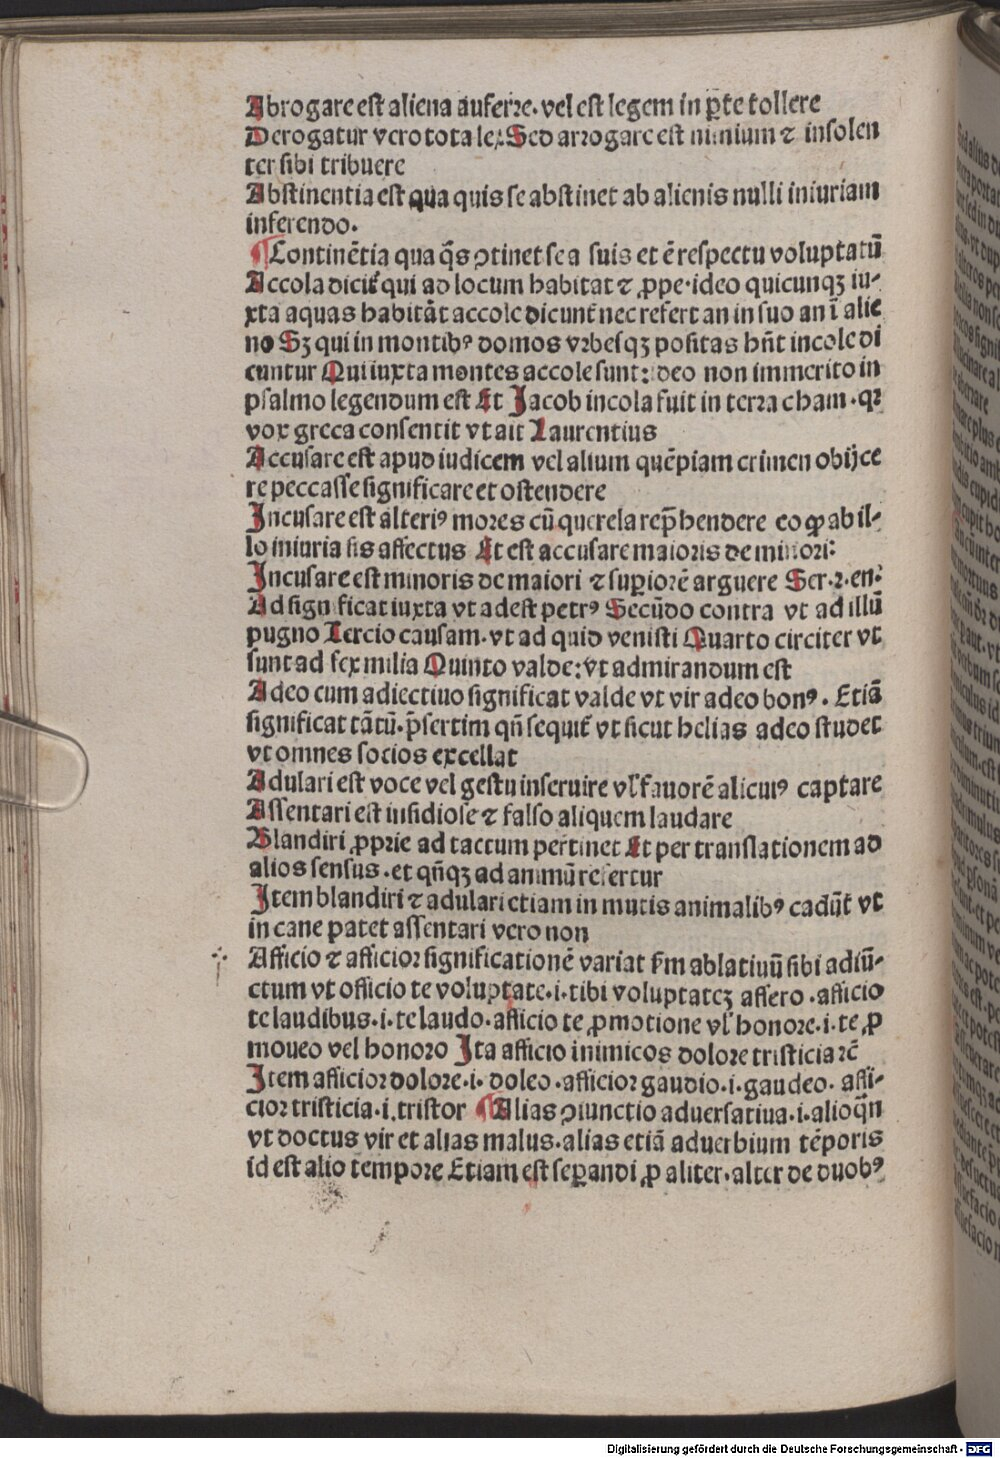 Abrogare est aliena auferre. vel est legem in p̱te tollere
Derogatur vero tota lex Sed arrogare est nimium ⁊ insolen
ter sibi tribuere
Abstinentia est qua quis se abstinet ab alienis nulli iniuriam
inferendo.
¶Continētia qua q̄s ꝯtinet se a suis et ē respectu voluptatū
Accola dicit᷑ qui ad locum habitat ⁊ ꝓpe. ideo quicunqꝫ iu-
xta aquas habitāt accole dicunt᷑ nec refert an in suo an ī alie
no Sꝫ qui in montibꝰ domos vrbesqꝫ positas hn̄t incole di
cuntur Qui iuxta montes accole sunt: ideo non immerito in
psalmo legendum est Et Jacob incola fuit in terra cham. qꝛ
vox greca consentit vt ait Laurentius
Accusare est apud iudicem vel alium quēpiam crimen obijce
re peccasse significare et ostendere
Incusare est alteriꝰ mores cū querela rep̄hendere eo ꝙ ab il-
lo iniuria sis affectus Et est accusare maioris de minori:
Incusare est minoris de maiori ⁊ sup̱iorē arguere Ser. 2. en:
Ad significat iuxta vt adest petrꝰ Secūdo contra vt ad illū
pugno Tercio causam. vt ad quid venisti Quarto circiter vt
sunt ad sex milia Quinto valde: vt admirandum est
Adeo cum adiectiuo significat valde vt vir adeo bonꝰ. Etiā
significat tātū. p̄sertim qn̄ sequit᷑ vt sicut helias adeo studet
vt omnes socios excellat
Adulari est voce vel gestu inseruire vl̓ fauorē alicuiꝰ captare
Assentari est insidiose ⁊ falso aliquem laudare
Blandiri ꝓprie ad tactum pertinet Et per translationem ad
alios sensus. et qn̄qꝫ ad animū refertur
Item blandiri ⁊ adulari etiam in mutis animalibꝰ cadūt᷑ vt
in cane patet assentari vero non
Afficio ⁊ afficior significationē variat ẜm ablatiuū sibi adiū-
ctum vt officio te voluptate. i. tibi voluptateꝫ affero. afficio
te laudibus. i. te laudo. afficio te ꝓmotione vl̓ honore. i. te ꝓ
moueo vel honoro Ita afficio inimicos dolore tristicia ⁊c̄
Item afficior dolore. i. doleo. afficior gaudio. i. gaudeo. affi-
cior tristicia. i. tristor ¶Alias ꝯiunctio aduersatiua. i. alioq̄n
vt doctus vir et alias malus. alias etiā aduerbium tēporis
id est alio tempore Etiam est sep̱andi ꝓ aliter. alter de duobꝰ
Digitalisierung gefördert durch die Deutsche Forschungsgemeinschaft - DFG